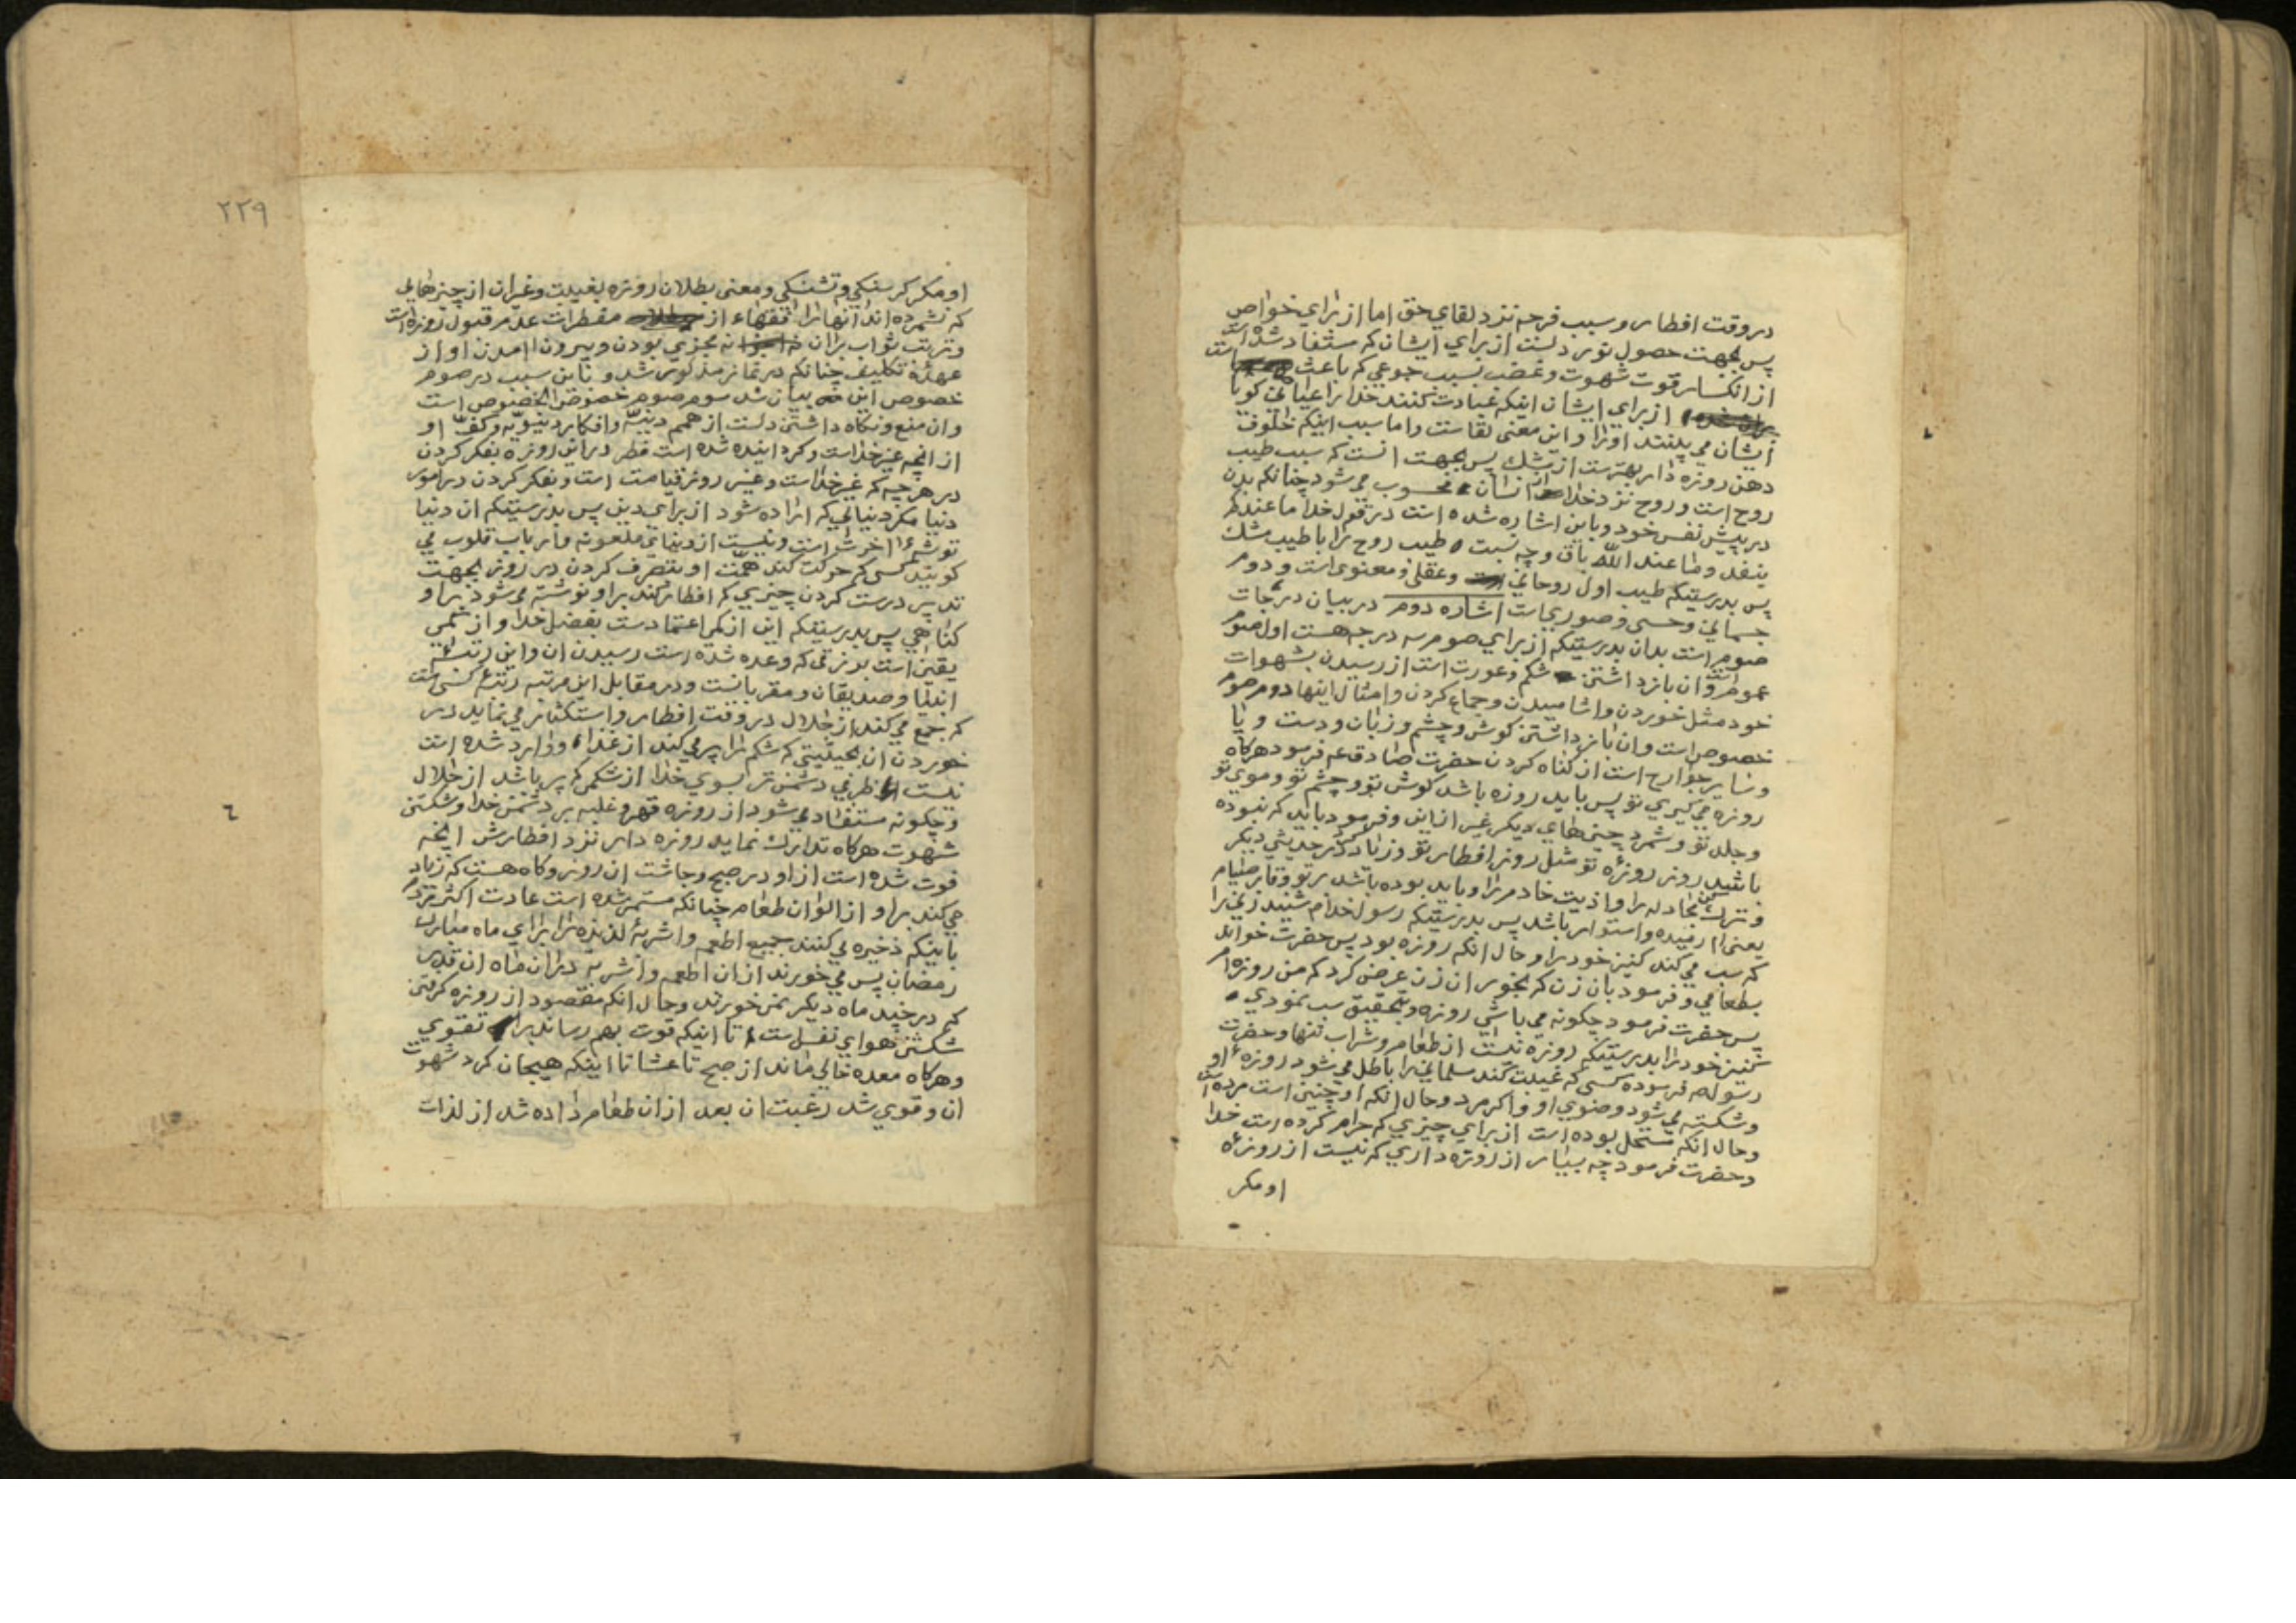 در وقت افطار و سبب فرحه نزد لقای حق اما از برای خواص
پس بجهت حصول نور دلست از برای ایشان که مستفاد شده است
از انکسار قوت شهوت و غضب بسبب جوعی که باعث است
از برای ایشان اینکه عبادت کنند خدا را عیانی کویا
ایشان می بینند او را و این معنی لقا است و اما سبب اینکه خلوف
دهن روزه دار بهتر است از مشک پس بجهت انست که سبب طیب
روح است و روح نزد خدا انسان محسوب میشود چنانکه بدن
در پیش نفس خود و باین اشاره شده است در قول خدا ما عندکم
ینفد و ما عند الله باق و چه نسبت طیب روح را با طیب مشک
پس بدرستیکه طیب اول روحانی و عقلی و معنوی است و دوم
جسمانی و حسی و صوریست اشاره دوم در بیان درجات
صوم است بدان بدرستیکه از برای صوم سه درجه هست اول صوم
عموم است و ان باز داشتن شکم و عورت است از رسیدن بشهوات
خود مثل خوردن و اشامیدن و جماع کردن و امثال اینها دوم صوم
خصوص است و ان باز داشتن کوش و چشم و زبان و دست و پا
و سایر جوارح است از کناه کردن حضرت صادق ع فرمود هرکاه
روزه می کیری تو پس باید روزه باشد کوش تو و چشم تو و موی تو
و جلد تو و شمرد چیزهای دیکر غیر از این و فرمود باید که نبوده
باشد روز روزه تو مثل روز افطار تو و زیاد کرد در حدیثی دیکر
و ترک کن مجادله را و اذیت خادم را و باید بوده باشد بر تو وقار صیام
یعنی ارمیده و استوار باشد پس بدرستیکه رسول خدا م شنید زنی را
که سب می کند کنیز خود را و حال انکه روزه بود پس حضرت خواند
بطعامی و فرمود بان زن که بخور ان زن عرض کرد که من روزه ام
پس حضرت فرمود چکونه می باشی روزه و بتحقیق سب نمودی
کنیز خود را بدرستیکه روزه نیست از طعام و شراب تنها و حضرت
رسول ص فرموده کسی که غیبت کند مسلمانی را باطل می شود روزه او
و شکسته می شود وضوی او و اکر مرد و حال انکه او چنین است مرده است
و حال انکه مستحل بوده است از برای چیزی که حرام کرده است خدا
و حضرت فرمود چه بسیار از روزه داری که نیست از روزه
او مکر
٢٢٩
او مکر کرسنکی و تشنکی و معنی بطلان روزه بغیبت و غیر ان از چیزهایی
که نشمرده اند انها را فقهاء از مفطرات عدم قبول روزه است
و ترتب ثواب بر ان نه مجزی بودن و بیرون امدن او از
عهده تکلیف چنانکه در نماز مذکور شد و باین سبب در صوم
خصوص این بیان شد سوم صوم خصوص الخصوص است
و ان منع و نکاه داشتن دلست از همم دنیه و افکار دنیویه و کف او
از انچه غیر خدا است و کردانیده شده است فطر در این روزه بفکر کردن
در هر چیه که غیر خدا است و غیر روز قیامت است و بفکر کردن در امور
دنیا مکر دنیایی که اراده شود از برای دین پس بدرستیکه ان دنیا
توشه اخرتست و نیست از دنیای ملعونه و ارباب قلوب می
کویند کسی که حرکت کند همت او بتصرف کردن در روز بجهت
تدبیر درست کردن چیزی که افطار کند بر او نوشته می شود بر او
کناهی پس بدرستیکه این از کم اعتمادست بفضل خدا و از کمی
یقین است برزقی که وعده شده است رسیدن ان و این رتبه
انبیا و صدیقان و مقربانست و در مقابل این مرتبه رتبه کسی است
که جمع می کند از حلال در وقت افطار و استکثار می نماید در
خوردن ان بحیثیتی که شکم را پر می کند از غذاء و وارد شده است
نیست ظرفی دشمن تر بسوی خدا از شکمی که پر باشد از حلال
و چکونه مستفاد می شود از روزه قهر و غلبه بر دشمن خدا و شکستن
شهوت هرکاه تدارک نماید روزه دار نزد افطارش انچه
فوت شده است از او در صبح و چاشت ان روز و کاه هست که زیاد
می کند بر او از الوان طعام چنانکه مستمر شده است عادت اکثر مردم
باینکه ذخیره می کنند جمیع اطعمه و اشربه لذیذه را برای ماه مبارک
رمضان پس می خورند از ان اطعمه و اشربه در ان ماه ان قدر
که در چند ماه دیکر نمی خورند و حال انکه مقصود از روزه کرفتن
شکستن هوای نفس است تا اینکه قوت بهم رساند بر تقوی
و هرکاه معده خالی ماند از صبح تا عشا تا اینکه هیجان کرد شهوت
ان و قوی شد رغبت ان بعد از ان طعام داده شد از لذات